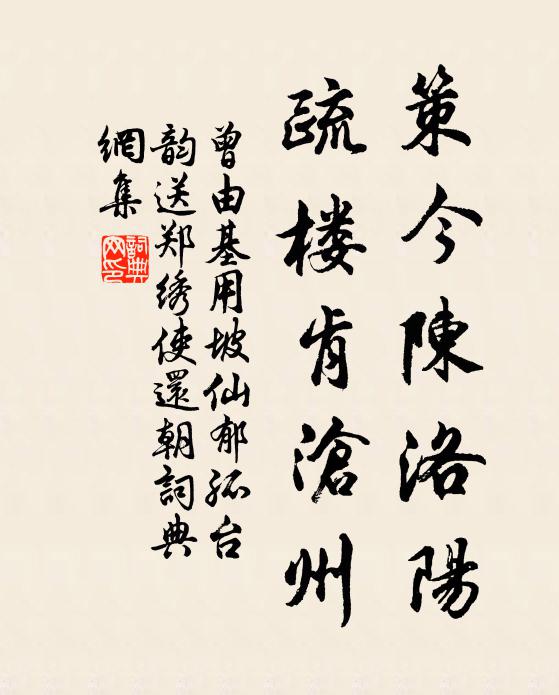 策今陳洛陽
疏楼肯滄州
曾由基用坡仙郁孤台
韵送郑绣使還朝詞典
網集
詞典
网印